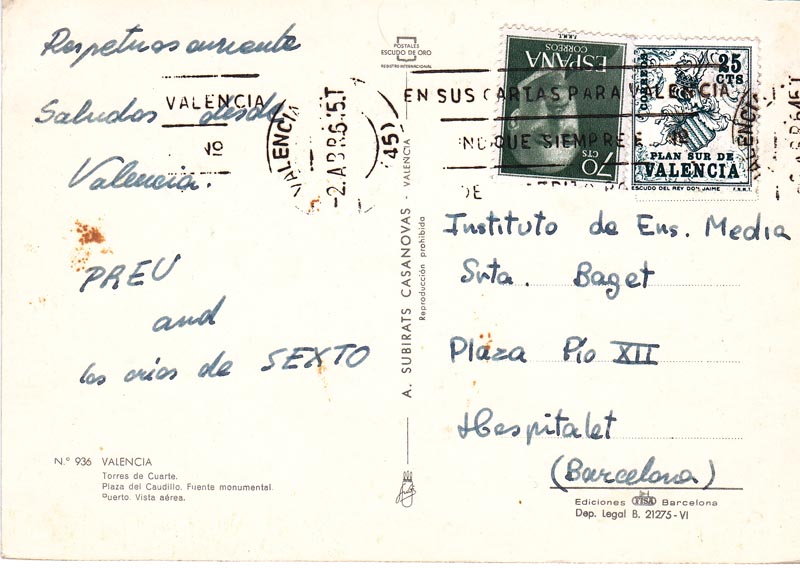 Respetuosamente
Saludos desde
Valencia.
PREU
and
los crios de SEXTO
N.º 936 VALENCIA
Torres de Cuarte.
Plaza del Caudillo. Fuente monumental.
Puerto. Vista aérea.
POSTALES
ESCUDO DE ORO
REGISTRO INTERNACIONAL
A. SUBIRATS CASANOVAS - VALENCIA
Reproducción prohibida
VALENCIA
Nº
VALENCIA
-2.ABR6.15.T
(45)
EN SUS CARTAS PARA VALENCIA
INDIQUE SIEMPRE E Nº
DE
VALENCIA
ESPAÑA
CORREOS
70
CTS
F.N.M.T.
CORREOS
25
CTS
PLAN SUR DE
VALENCIA
ESCUDO DEL REY DON JAIME F.N.M.T.
Instituto de Ens. Media
Srta. Baget
Plaza Pío XII
Hospitalet
(Barcelona)
Ediciones FISA Barcelona
Dep. Legal B. 21275-VI